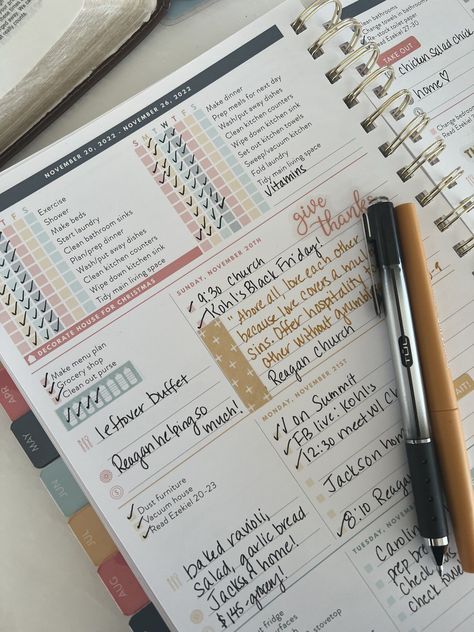 NOVEMBER 20, 2022 - NOVEMBER 26, 2022
S M T W T F S
Make dinner
Prep meals for next day
Wash/put away dishes
Clean kitchen counters
Wipe down kitchen sink
Set out kitchen towels
Sweep/vacuum kitchen
Fold laundry
Tidy main living space
Vitamins
T F S
Exercise
Shower
Make beds
Start laundry
Clean bathroom sinks
Plan/prep dinner
Wash/put away dishes
Clean kitchen counters
Wipe down kitchen sink
Tidy main living space
DECORATE HOUSE FOR CHRISTMAS
Make menu plan
Grocery shop
Clean out purse
leftover buffet
Reagan helping so
much!
Dust furniture
Vacuum house
Read Ezekiel 20-23
baked ravioli,
salad, garlic bread
Jackson home!
fridge
stovetop
give thanks
SUNDAY, NOVEMBER 20TH
9:30 church
Kohl's Black Friday!
"Above all love each other
because love covers a mul
sins. Offer hospitality to
other without grumbl
Reagan church
MONDAY, NOVEMBER 21ST
1 on Summit
FB live: Kohl's
12:30 meet w/
Jackson home
8:10 Reagan
TUESDAY, NOVEMBER
Carolin
prep b
check
check
Clean bathrooms
Change towels in bathrooms
Re-stock toilet paper
Read Ezekiel 27-30
TAKE OUT
chicken salad chick
home♡
Change bed
Read Eze
APR
MAY
JUN
JUL
AUG
TUL